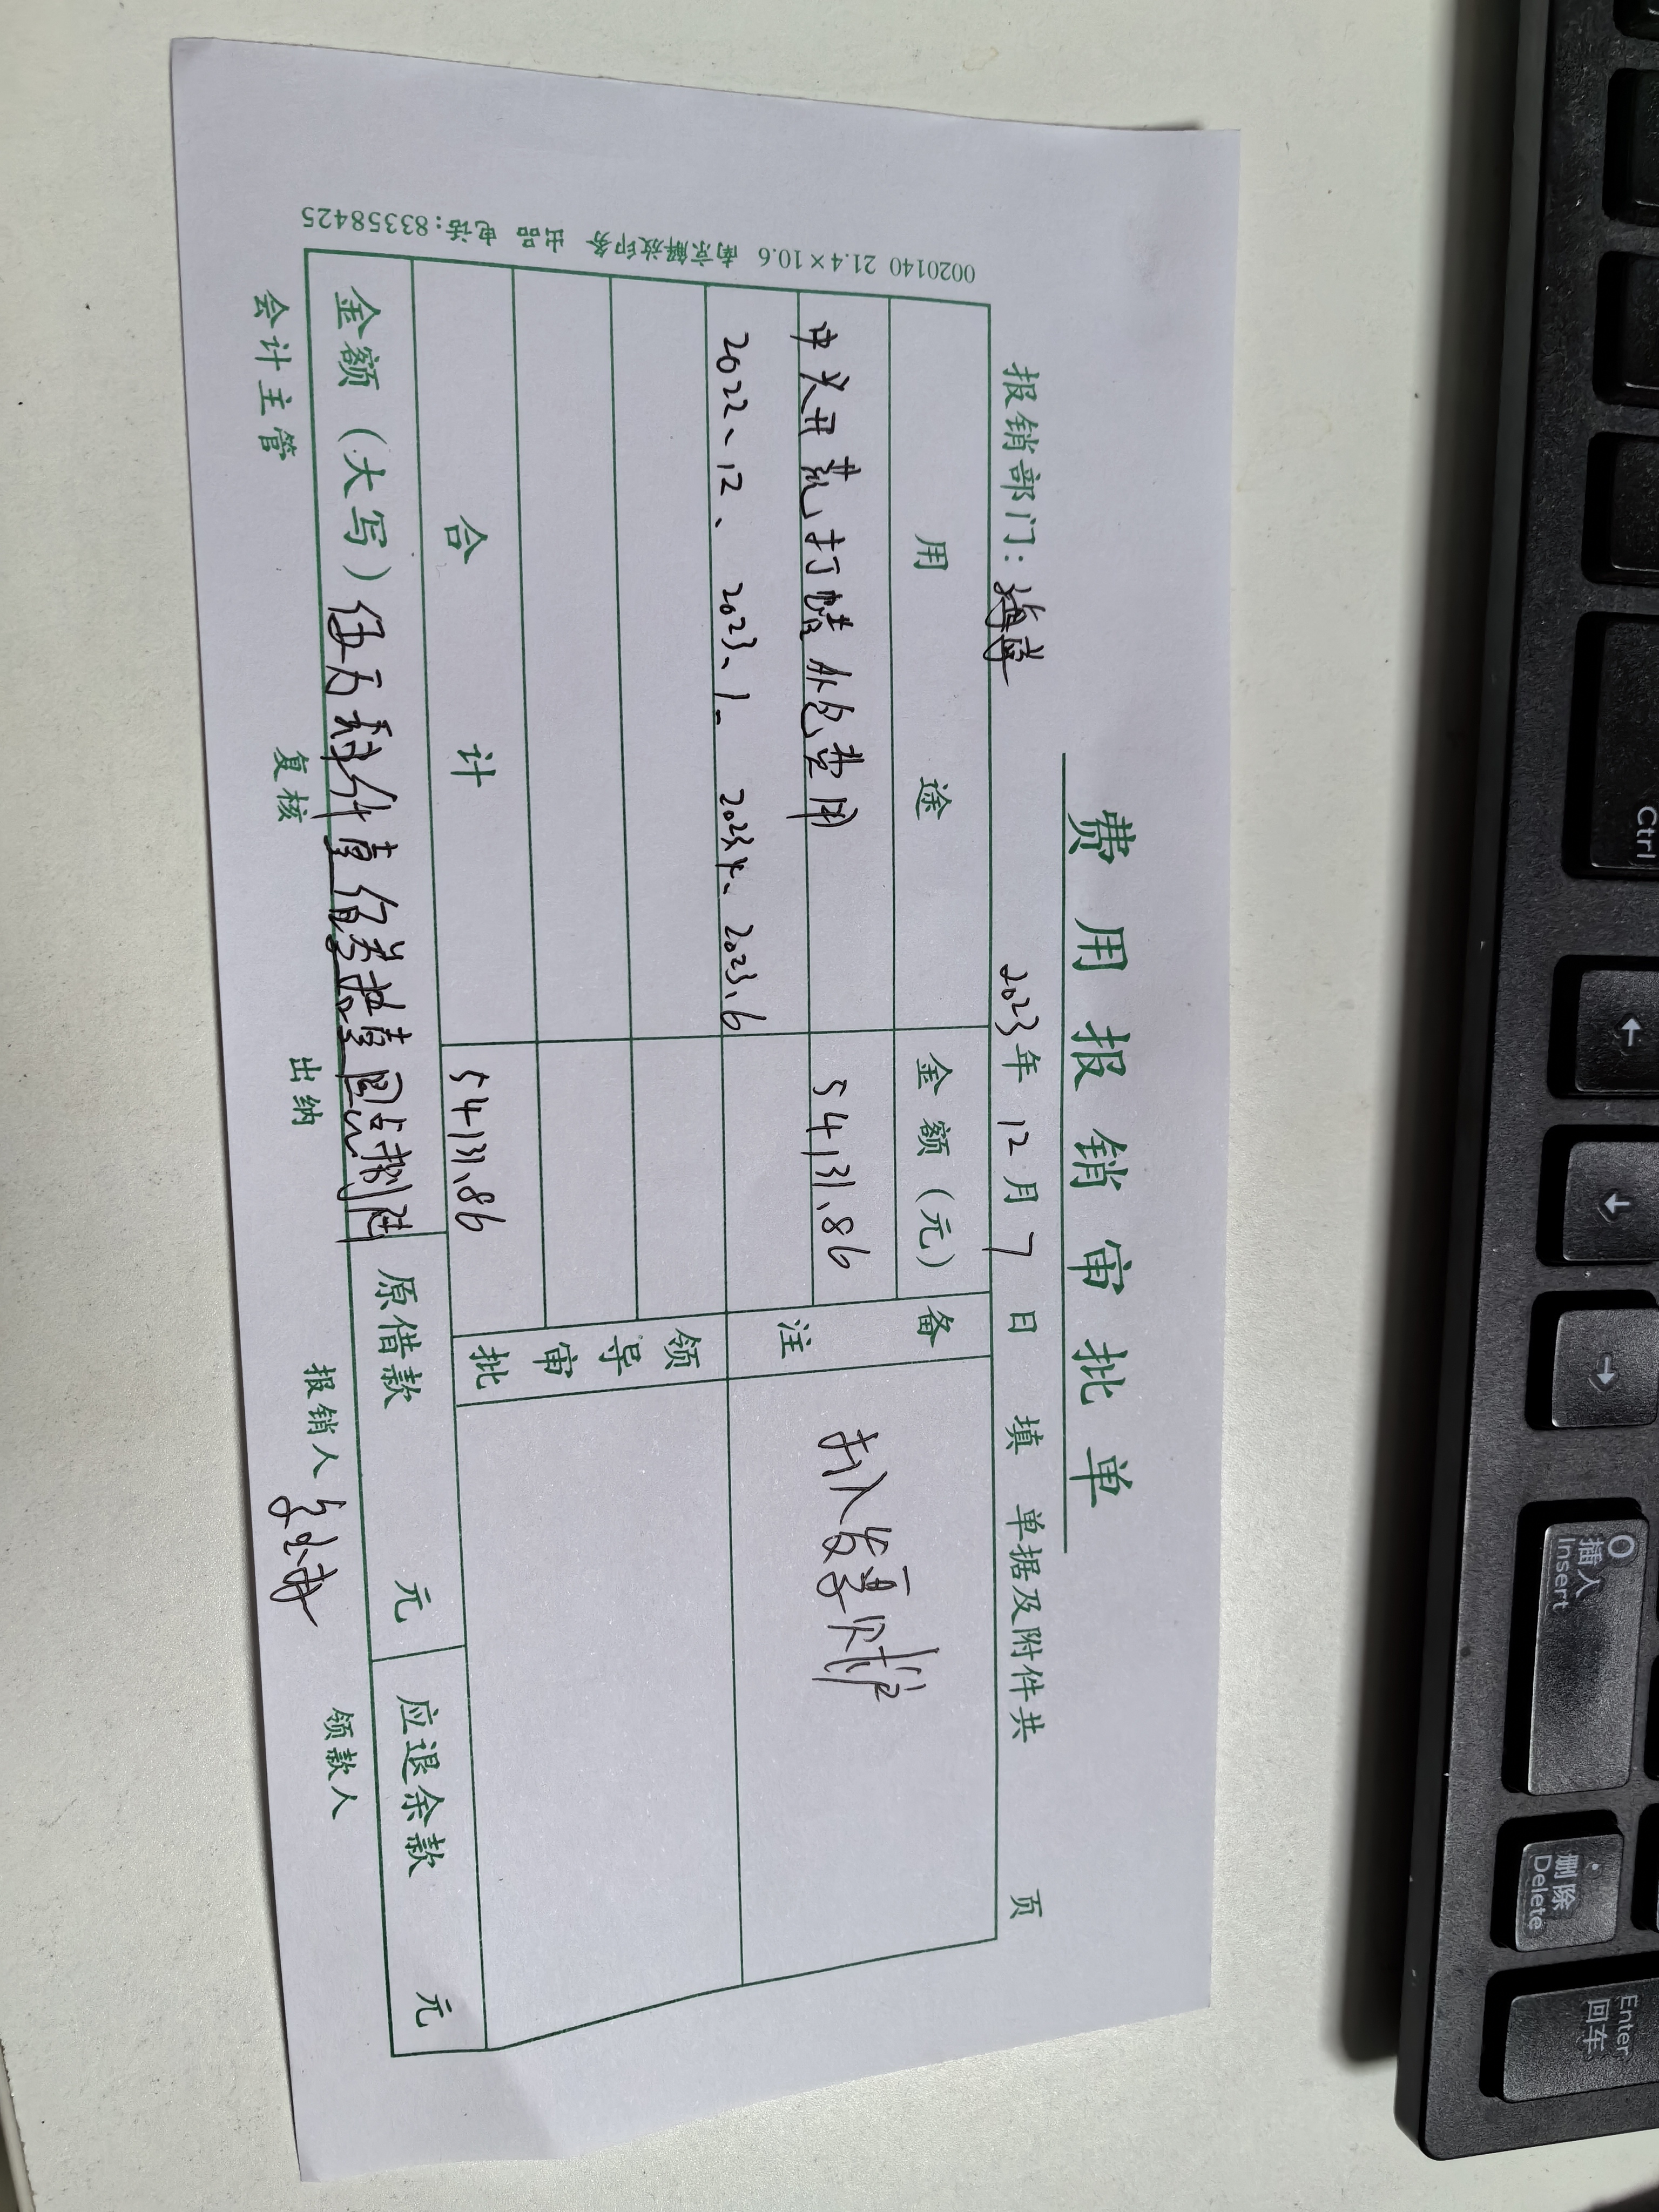 费用报销审批单
报销部门: 2023年 12月 7日 填 单据及附件共 页
用途 金额(元) 备注
中 开荒、打蜡外包费用 54131.86
2022、12、 2023、1- 2023.4、2023、6
扣 发票
领导审批
合计 54131.86
金额(大写)伍万肆仟壹佰叁拾壹圆 捌 原借款 元 应退余款 元
会计主管 复核 出纳 报销人 领款人
0020140 21.4×10.6 南京解放印务 出品 电话:83358425
Ctrl
←
↓
→
0
插入
Insert
.
删除
Delete
Enter
回车